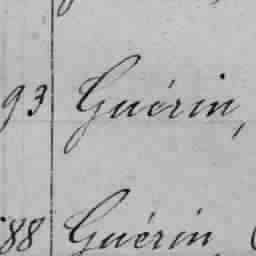 93 Guérin,
88 Guérin